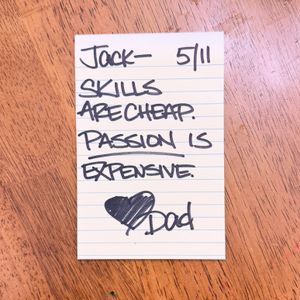 JACK— 5/11
SKILLS
ARE CHEAP.
PASSION IS
EXPENSIVE.
Dad